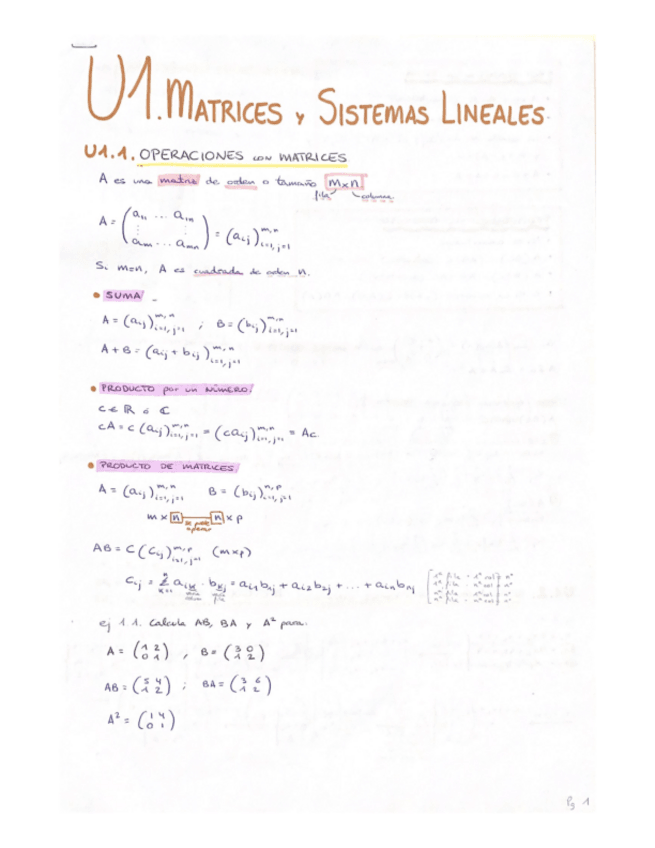 U1. MATRICES y SISTEMAS LINEALES
U1.1. OPERACIONES con MATRICES
A es una matriz de orden o tamaño m×n
fila columna
A = (a₁₁ ... a₁ₙ ⋮ ⋮ aₘₙ ... aₘₙ) = (aᵢⱼ)ᵐ,ⁿᵢ₌₁,ⱼ₌₁
Si m=n, A es cuadrada de orden n.
• SUMA
A = (aᵢⱼ)ᵐ,ⁿᵢ₌₁,ⱼ₌₁ ; B = (bᵢⱼ)ᵐ,ⁿᵢ₌₁,ⱼ₌₁
A + B = (aᵢⱼ + bᵢⱼ)ᵐ,ⁿᵢ₌₁,ⱼ₌₁
• PRODUCTO por un NÚMERO
c ∈ ℝ ó ℂ
cA = c (aᵢⱼ)ᵐ,ⁿᵢ₌₁,ⱼ₌₁ = (caᵢⱼ)ᵐ,ⁿᵢ₌₁,ⱼ₌₁ = Ac
• PRODUCTO DE MATRICES
A = (aᵢⱼ)ᵐ,ⁿᵢ₌₁,ⱼ₌₁ B = (bᵢⱼ)ⁿ,ᵖᵢ₌₁,ⱼ₌₁
m × n n × p
se puede operar
AB = C (Cᵢⱼ)ᵐ,ᵖᵢ₌₁,ⱼ₌₁ (m×p)
Cᵢⱼ = Σⁿₖ₌₁ aᵢₖ · bₖⱼ = aᵢ₁b₁ⱼ + aᵢ₂b₂ⱼ + ... + aᵢₙbₙⱼ
ej 1.1. Calcula AB, BA y A² para:
A = (1 2 0 1) , B = (3 0 1 2)
AB = (5 4 1 2) ; BA = (3 6 1 2)
A² = (1 4 0 1)
Pg 1